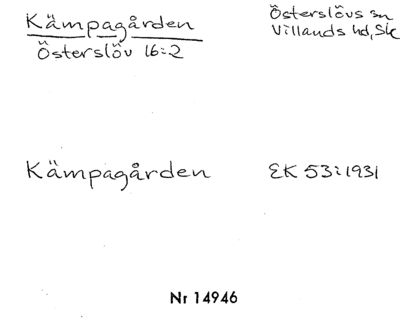 Kämpagården
Österslöv 16:2
Österslövs sn
Villands hd, Sk
Kämpagården
EK 53:1931
Nr 14946